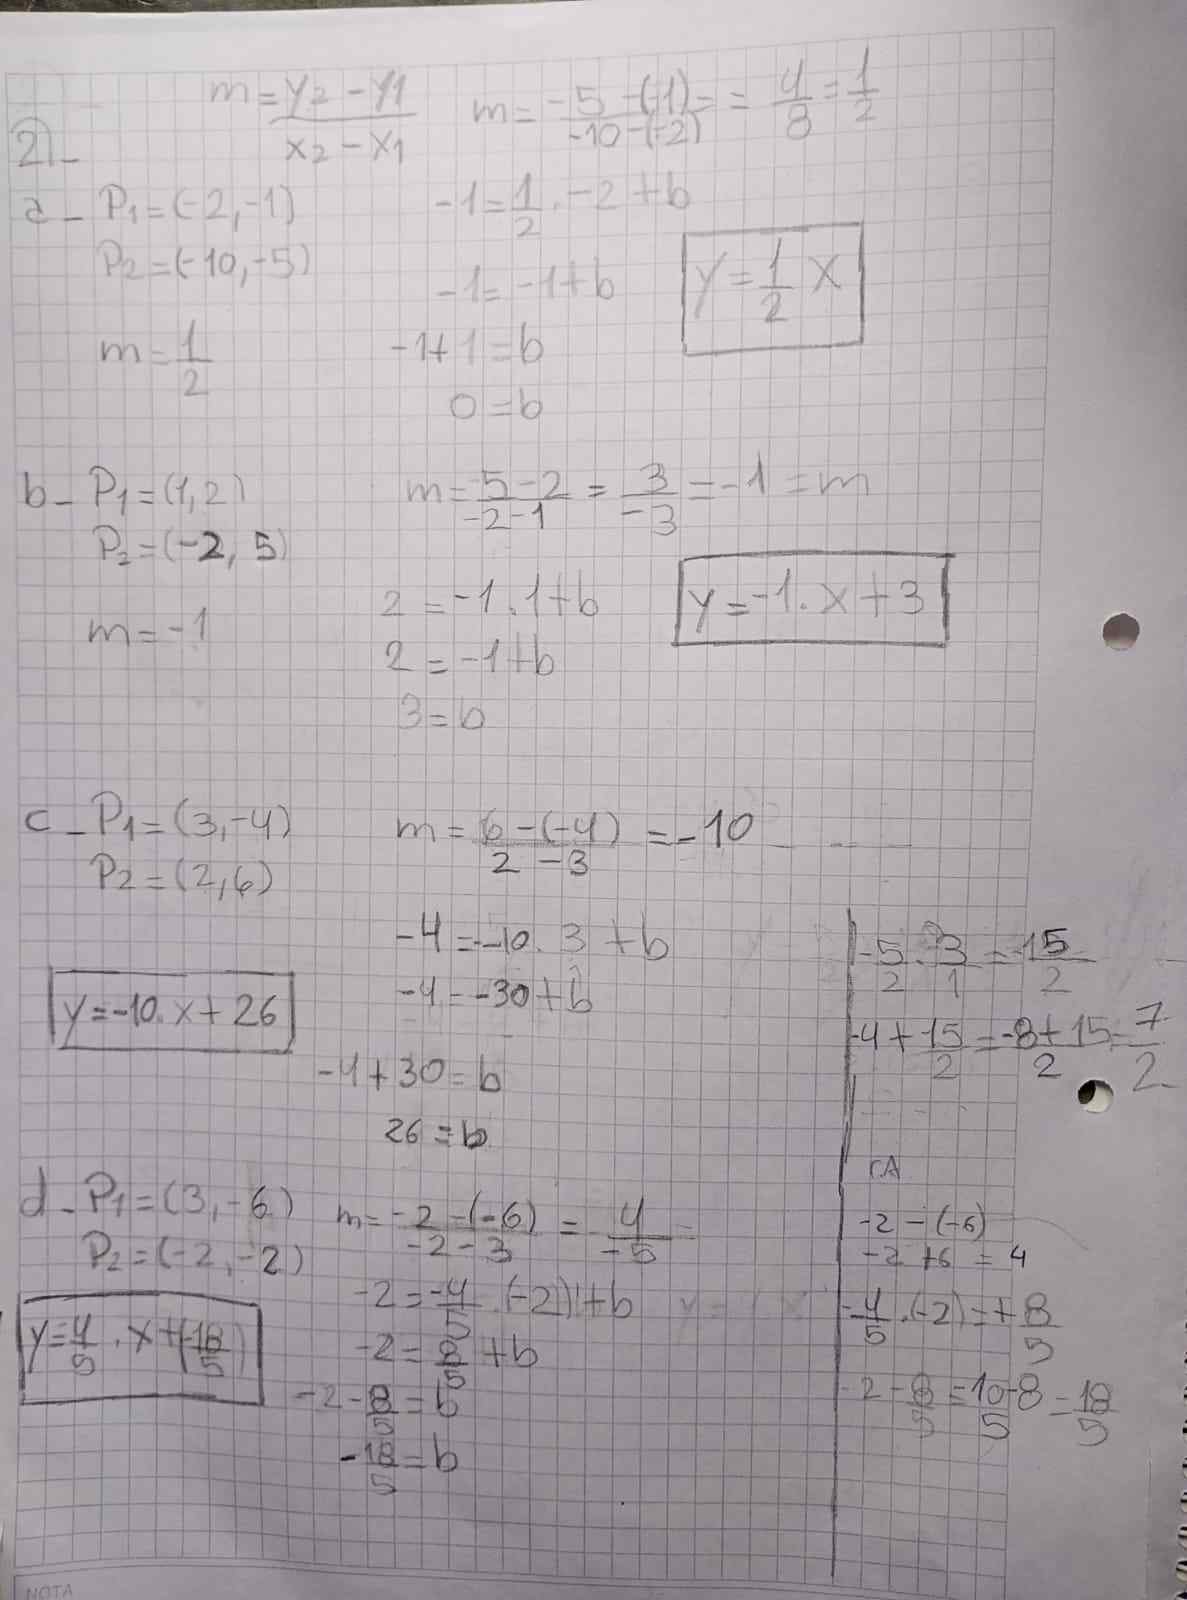 2)-
m = y2 - y1 / x2 - x1
m = -5 - (-1) / -10 - (-2) = = 4/8 = 1/2
a - P1 = (-2, -1)
P2 = (-10, -5)
m = 1/2
-1 = 1/2 . -2 + b
-1 = -1 + b
-1 + 1 = b
0 = b
y = 1/2 x
b - P1 = (1, 2)
P2 = (-2, 5)
m = -1
m = 5 - 2 / -2 - 1 = 3/-3 = -1 = m
2 = -1 . 1 + b
2 = -1 + b
3 = b
y = -1 . x + 3
c - P1 = (3, -4)
P2 = (2, 6)
m = 6 - (-4) / 2 - 3 = -10
-4 = -10 . 3 + b
-4 = -30 + b
-4 + 30 = b
26 = b
y = -10 . x + 26
-5/2 . 3/1 = -15/2
-4 + 15/2 = -8 + 15 / 2 = 7/2
d - P1 = (3, -6)
P2 = (-2, -2)
m = -2 - (-6) / -2 - 3 = 4/-5 =
-2 = -4/5 . (-2) + b
-2 = 8/5 + b
-2 - 8/5 = b
-18/5 = b
y = 4/5 . x + (-18/5)
CA
-2 - (-6)
-2 + 6 = 4
-4/5 . (-2) = + 8/5
-2 - 8/5 = 10 - 8 / 5 = 18/5
NOTA